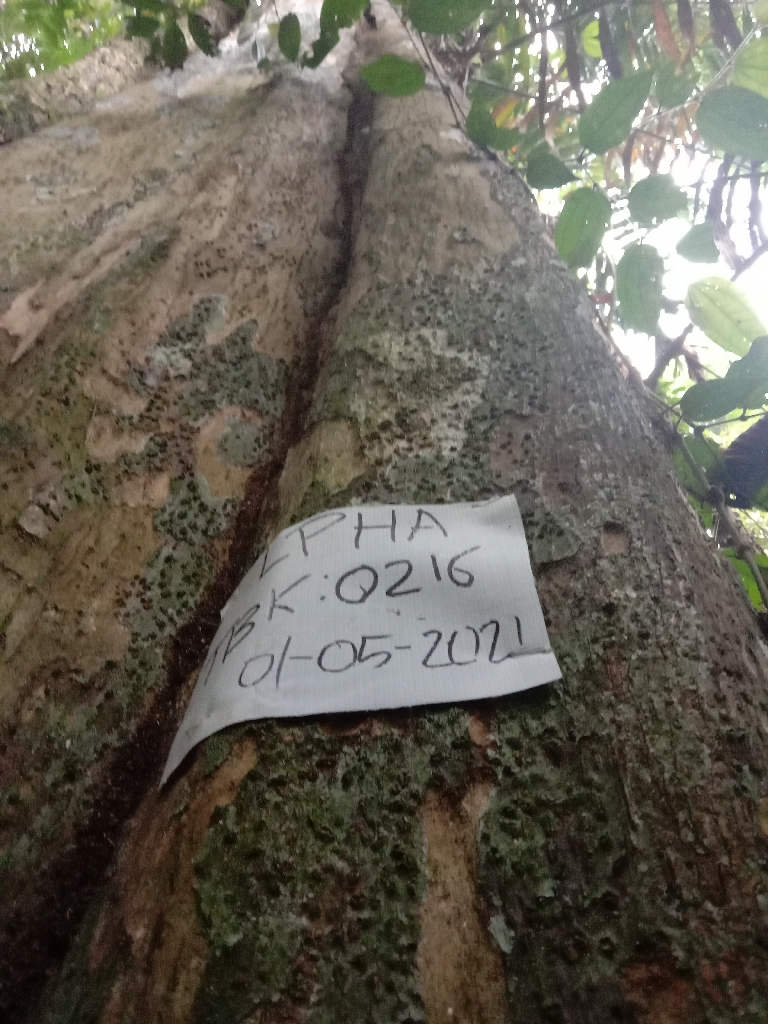 LPHA
TBK: Q216
01-05-2021